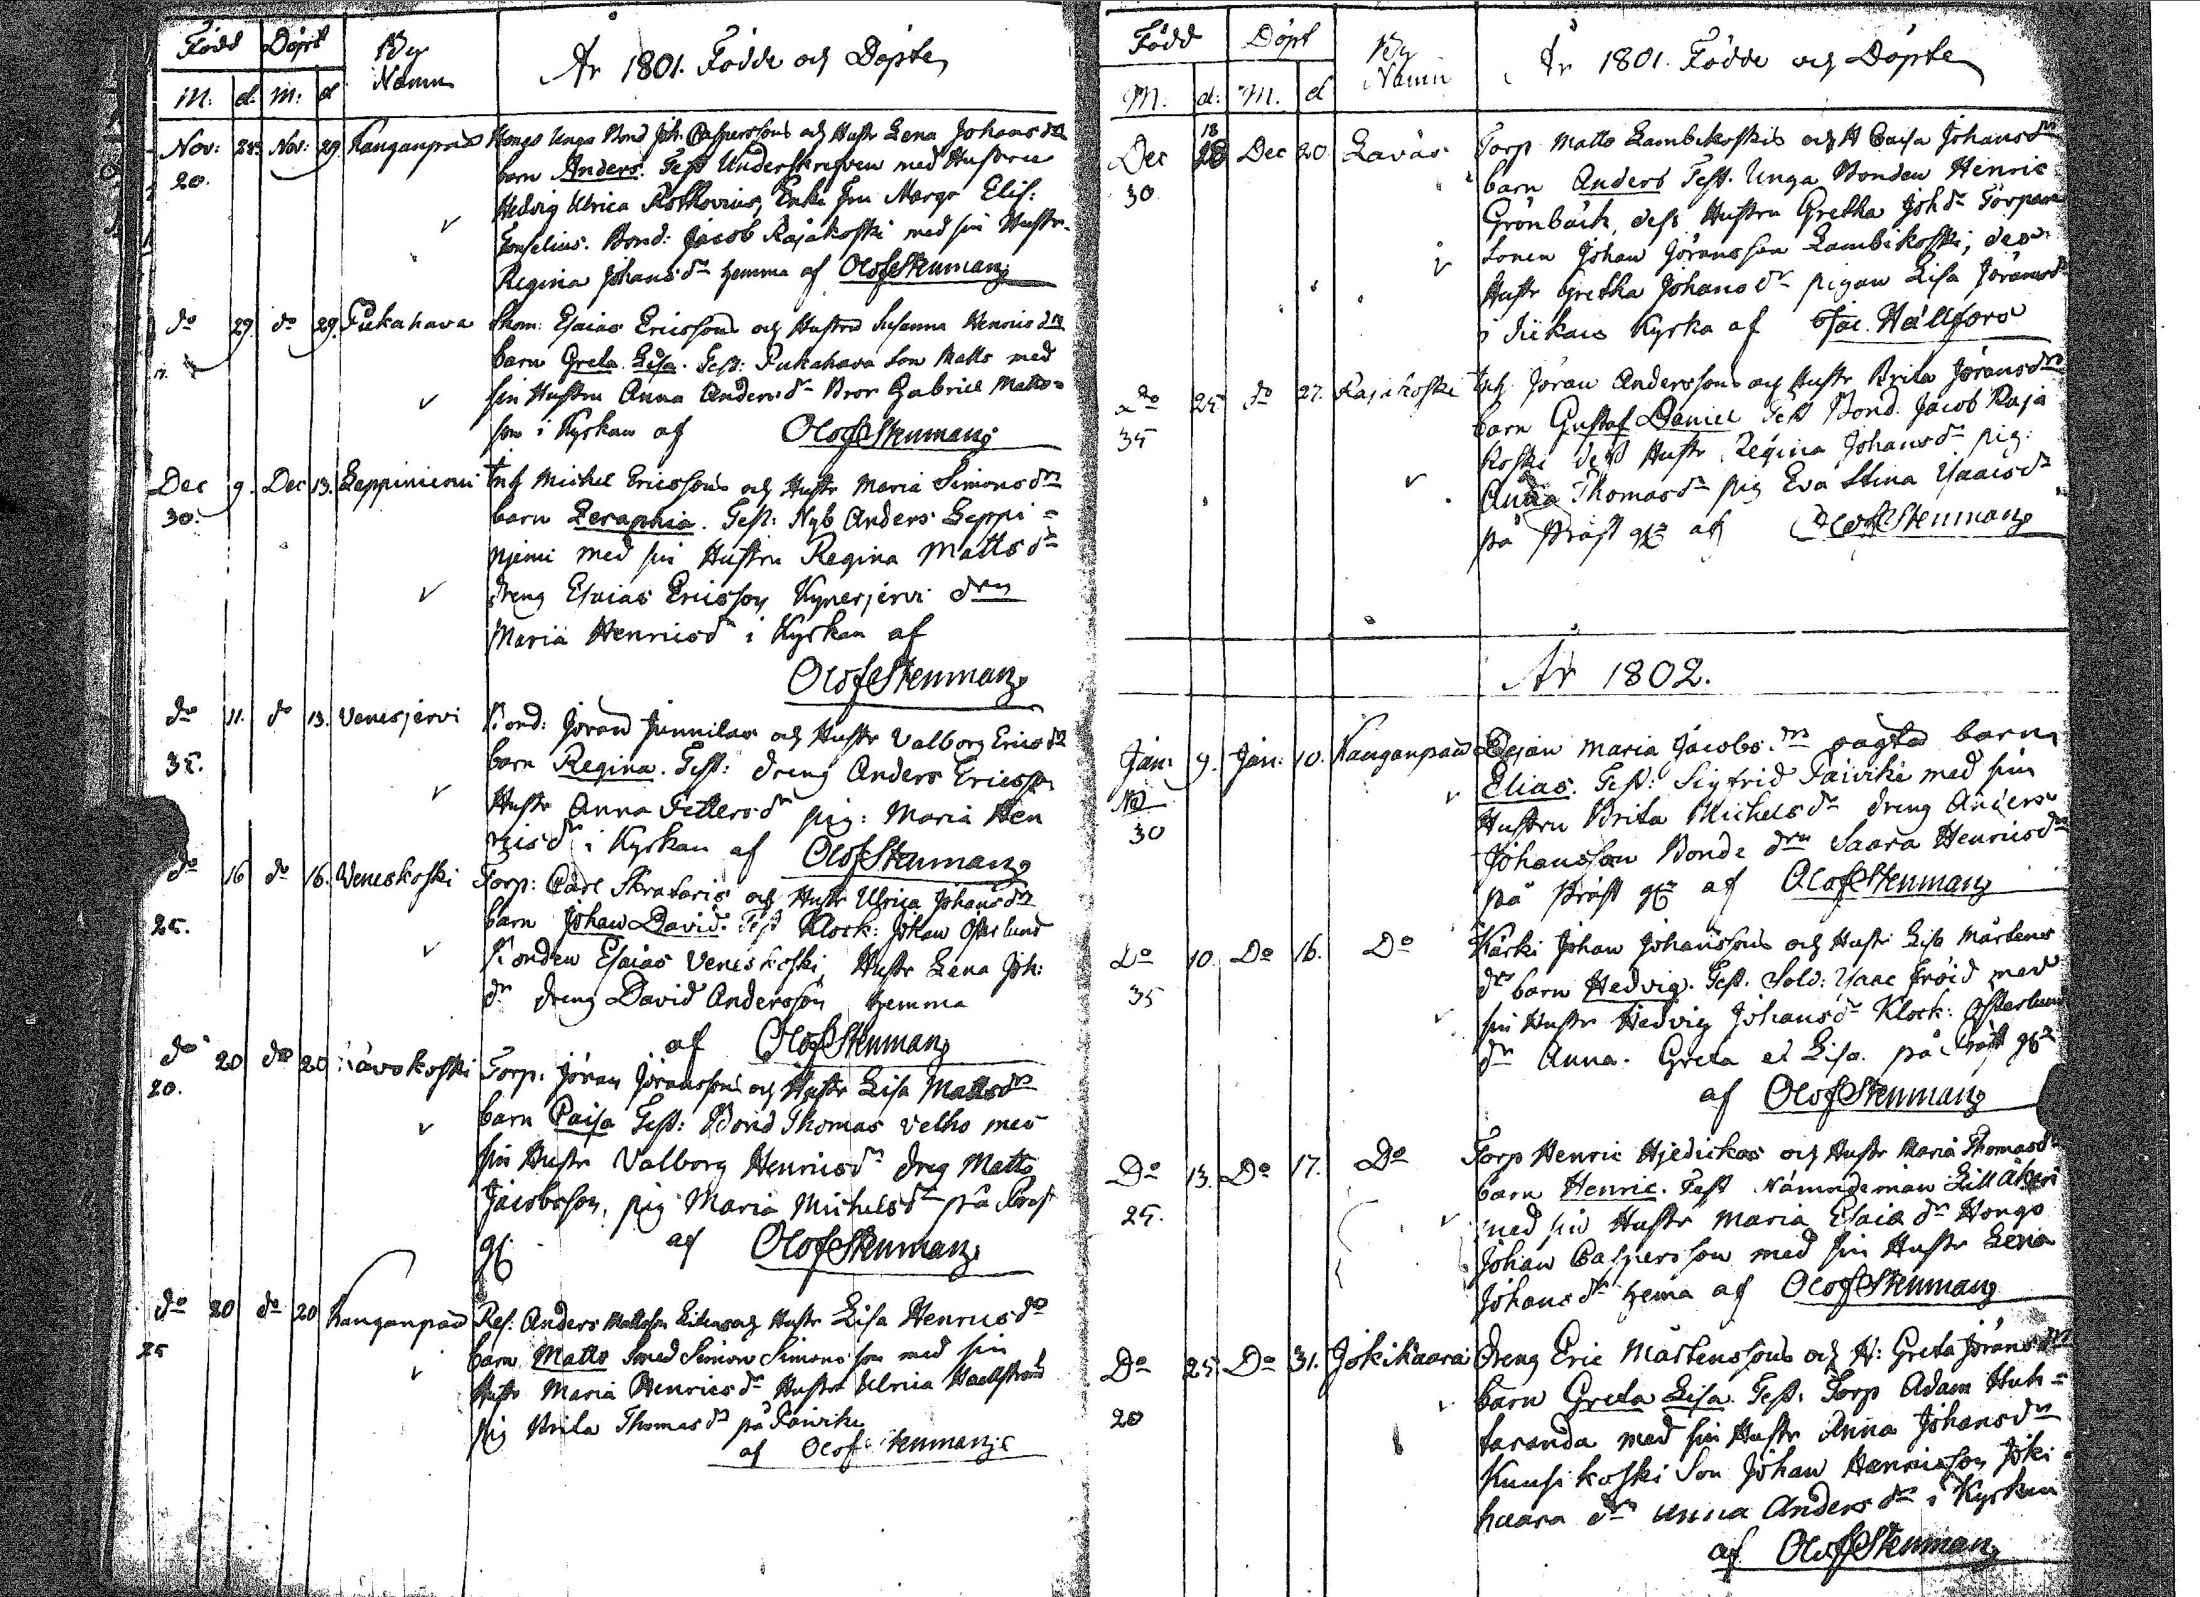 Född Döpt By Namn År 1801. Födde och Döpte
M: d. M: d
Nov: 28. Nov: 29. Kanganpää Hongo Unga Bond Joh: Caspersons och Hustr Lena Johansdr
20. barn Anders. Test Underskrefven med Hustru
Hedvig Ulrica Enke Fru Marg: Elis:
Forselius. Bond: Jacob Rajakoski med sin Hustr.
Regina Johansdr hemma af Olof Stenman
do 29. do 29. Pukahava Skom: Esaias Ericssons och Hustru Susanna Henricsdr
barn Greta Lisa. Test: Pukahava Son Matts med
sin Hustru Anna Andersdr Bror Gabriel Matts-
son i Kyrkan af Olof Stenman
Dec 9. Dec 13. Leppiniemi Inh Michel Ericssons och Hustr Maria Simonsdr
30. barn Zeraphia. Test: Nyb Anders Leppi-
njemi med sin Hustru Regina Mattsdr
dreng Esaias Ericsson Kynesjervi drn
Maria Henricsdr i Kyrkan af
Olof Stenman
do 11. do 13. Venesjervi Bond: Jöran Junnilas och Hustr Valborg Ericsdr
35. barn Regina. Test: dreng Anders Ericsson
Hustr Anna Pettersdr pig: Maria Hen
ricsdr i Kyrkan af Olof Stenman
do 16 do 16. Veneskoski Torp: Carl Skrataris och Hustr Ulrica Johansdr
25. barn Johan David. Test Klock: Johan Österlund
Bonden Esaias Veneskoski, Hustr Lena Joh:
dr dreng David Andersson hemma
af Olof Stenman
do 20 do 20 Torp: Jöran Jöranssons och Hustr Lisa Mattsdr
20. barn Caisa Test: Bond Thomas Velho med
sin Hustr Valborg Henricsdr dreg Matts
Jacobsson, pig Maria Michelsdr på Präst
gn af Olof Stenman
do 20 do 20 Kanganpää Res. Anders Mattsson och Hustr Lisa Henricsdr
25 barn Matts Smed Simon Simonsson med sin
Hustr Maria Henricsdr Hustr Ulrica Haellström
pig Brita Thomasdr på Päivike
af Olof Stenman
Född Döpt By Namn År 1801. Födde och Döpte
M: d: M. d
Dec 18 Dec 20 Laväs Torp. Matts Lambikoskis och H Caisa Johansdr
30 barn Anders Test. Unga Bonden Henric
Grönbäck, dess Hustru Gretha Johdr Torpare
Sonen Johan Jöransson Lambikoski, dess
Hustr Gretha Johansdr pigan Lisa Jöransdr
i Jickais Kyrka af Isac. Hällfors
Do 25 do 27. Rajakoski Inh. Jöran Anderssons och Hustr Brita Jöransdr
35 barn Gustaf Daniel Test Bond. Jacob Raja
koski dess Hustr Regina Johansdr pig:
Anna Thomasdr pig Eva Stina Isaacsdr
på Präst gn af Olof Stenman
År 1802.
Jan: 9. Jan: 10. Kanganpää Pigan Maria Jacobs drs oägta barn
30 Elias. Test: Sigfrid Päivike med sin
Hustru Brita Michelsdr dreng Anders
Johansson Bonde drn Saara Henricsdr
på Präst gn af Olof Stenman
Do 10. Do 16. Do Kärki Johan Johanssons och Hustr Lisa Mårtens
35 drs barn Hedvig. Test. Sold: Isaac Fröid med
sin Hustr Hedvig Johansdr Klock: Österlund
dr Anna. Greta et Lisa. på Präst gn
af Olof Stenman
Do 13. Do 17. Do Torp Henric Hjedickas och Hustr Maria Thomasdr
25. barn Henric. Test Nämndeman
med sin Hustr Maria Esaiædr Hongo
Johan Caspersson med sin Hustr Lena
Johansdr hema af Olof Stenman
Do 25 Do 31. Jokikaara Dreng Eric Mårtenssons och H: Greta Jöransdr
20 barn Greta Lisa. Test: Torp Adam Huh-
taranda med sin Hustr Anna Johansdr
Kuusikoski Son Johan Henricsson Joki-
kaara drn Anna Andersdr i Kyrkan
af Olof Stenman